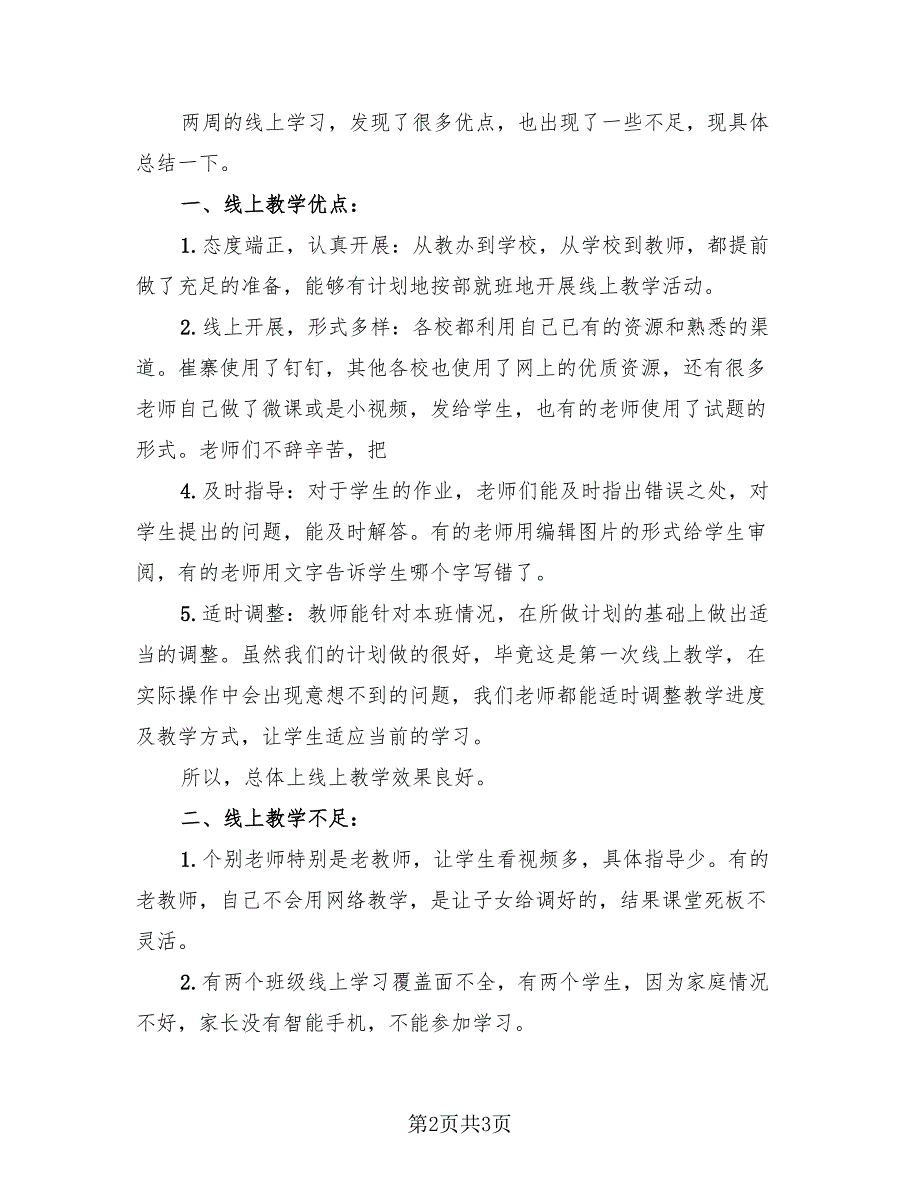 两周的线上学习，发现了很多优点，也出现了一些不足，现具体
总结一下。
一、线上教学优点：
1. 态度端正，认真开展：从教办到学校，从学校到教师，都提前
做了充足的准备，能够有计划地按部就班地开展线上教学活动。
2. 线上开展，形式多样：各校都利用自己已有的资源和熟悉的渠
道。崔寨使用了钉钉，其他各校也使用了网上的优质资源，还有很多
老师自己做了微课或是小视频，发给学生，也有的老师使用了试题的
形式。老师们不辞辛苦，把
4. 及时指导：对于学生的作业，老师们能及时指出错误之处，对
学生提出的问题，能及时解答。有的老师用编辑图片的形式给学生审
阅，有的老师用文字告诉学生哪个字写错了。
5. 适时调整：教师能针对本班情况，在所做计划的基础上做出适
当的调整。虽然我们的计划做的很好，毕竟这是第一次线上教学，在
实际操作中会出现意想不到的问题，我们老师都能适时调整教学进度
及教学方式，让学生适应当前的学习。
所以，总体上线上教学效果良好。
二、线上教学不足：
1. 个别老师特别是老教师，让学生看视频多，具体指导少。有的
老教师，自己不会用网络教学，是让子女给调好的，结果课堂死板不
灵活。
2. 有两个班级线上学习覆盖面不全，有两个学生，因为家庭情况
不好，家长没有智能手机，不能参加学习。
第2页共3页